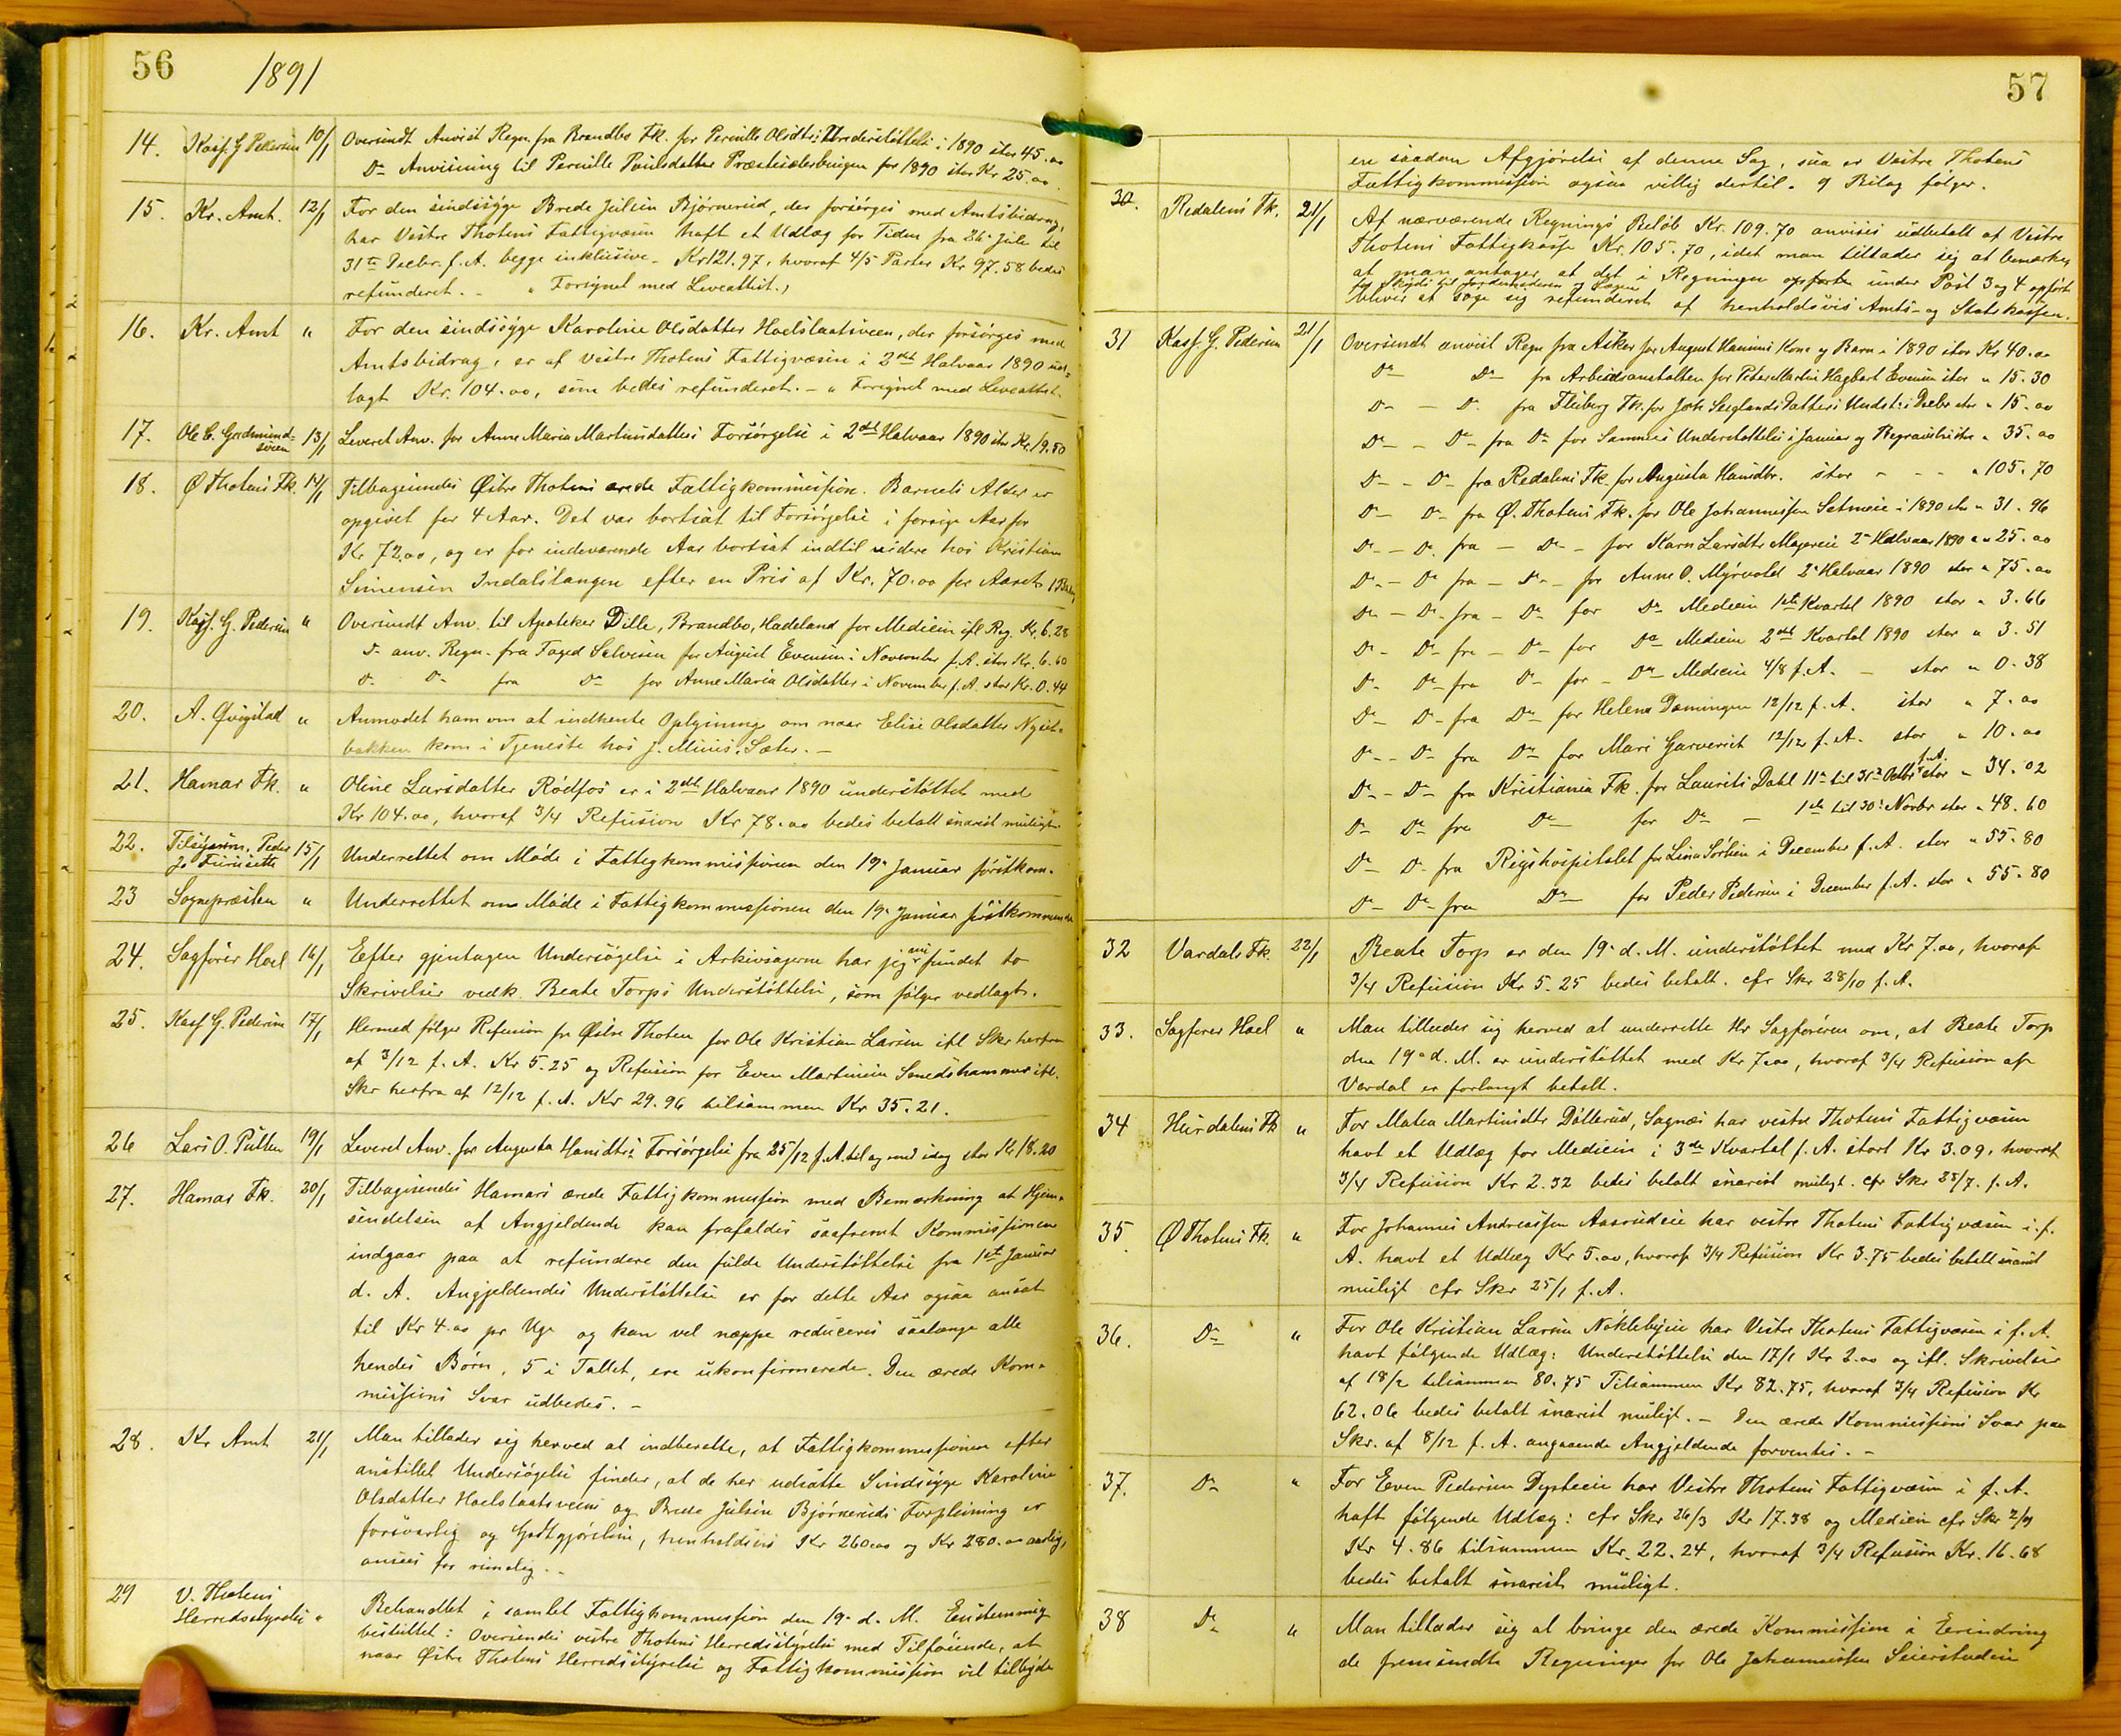 56
1891
14. Kass. G Pedersen 10/1 Oversendt Anvist Regn. fra Brandbo Fk. for Pernille Olsdtrs Understøttelse i 1890 stor 45.00
Do Anvisning til Pernille Paulsdatter Præstesæterbrugen for 1890 stor Kr 25.00.
15. Kr. Amt. 12/1 For den sindssyge Brede Julsen Bjørnerud, der forsørges med Amtsbidrag,
har Vestre Thotens Fattigvæsen haft et Udlæg for Tiden fra 26. Juli til
31te Decbr. f. A. begge inklusive. Kr 121.97, hvoraf 4/5 Parter Kr 97.58 bedes
refunderet. - " Forsynet med Leveattest.
16. Kr. Amt " For den sindssyge Karoline Olsdatter Hoelslaatsveen, der forsørges med
Amtsbidrag, er af vestre Thotens Fattigvæsen i 2det Halvaar 1890 ud=
lagt Kr. 104.00, som bedes refunderet. - " Forsynet med Leveattest.
17. Ole C. Gudmund=
sveen 13/1 Leveret Anv. for Anne Maria Martinsdatters Forsørgelse i 2det Halvaar 1890 stor Kr. 19.50
18. Ø Thotens Fk. 14/1 Tilbagesendes Østre Thotens ærede Fattigkommission. Barnets Alder er
opgivet for 4 Aar. Det var bortsat til Forsørgelse i forrige Aar for
Kr 72.00, og er for indeværende Aar bortsat indtil videre hos Kristian
Simensen Indalstangen efter en Pris af Kr. 70.00 for Aaret. 1 Bilag
19. Kass. G. Pedersen " Oversendt Anv. til Apoteker Dille, Brandbo, Hadeland for Medicin ifl Reg. Kr. 6.28
Do anv. Regn. fra Foged Selvesen for August Evensen i November f. A. stor Kr. 6.60
Do Do fra Do for Anne Maria Olsdatter i November f. A. stor Kr. 0.44
20. A. Qvigstad " Anmodet ham om at indhente Oplysninge om naar Elise Olsdatter Nyset=
bakken kom i Tjeneste hos J. Sæter. -
21. Hamar Fk. " Oline Larsdatter Rødfos er i 2det Halvaar 1890 understøttet med
Kr 104.00, hvoraf 3/4 Refusion Kr 78.00 bedes betalt snarest muligt.
22. Tilsynsm. Peder
15/1 Underrettet om Møde i Fattigkommissionen den 19. Januar førstkom.
23 Sognepræsten " Underrettet om Møde i Fattigkommissionen den 19. Januar førstkommende
24. Sagfører Hoel 16/1 Efter gjentagen Undersøgelse i Arkivsagerne har jeg nu fundet to
Skrivelser vedk. Beate Torps Understøttelse, som følger vedlagt.
25. Kass G. Pedersen 17/1 Hermed følger Refusion fra Østre Thoten for Ole Kristian Larsen ifl Skr herfra
af 3/12 f. A. Kr 5.25 og Refusion for Even Martinsen Smedshammer ifl.
Skr herfra af 12/12 f. A. Kr 29.96 tilsammen Kr 35.21.
26 Lars O. Putten 19/1 Leveret Anv. for Augusta Hansdtrs Forsørgelse fra 25/12 f. A. til og med idag stor Kr 18.20
27. Hamar Fk. 20/1 Tilbagesendes Hamars ærede Fattigkommission med Bemærkning at Hjem=
sendelsen af Angjeldende kan frafaldes saafremt Kommissionen
indgaar paa at refundere den fulde Understøttelse fra 1ste Januar
d. A. Angjeldendes Understøttelse er for dette Aar ogsaa ansat
til Kr 4.00 pr Uge og kan vel næppe reduceres saalænge alle
hendes Børn, 5 i Tallet, ere ukonfirmerede. Den ærede Kom=
missions Svar udbedes. -
28. Kr Amt 21/1 Man tillader sig herved at indberette, at Fattigkommissionen efter
anstillet Undersøgelse finder, at de her udsatte Sindssyge Karoline
Olsdatter Hoelslaatsveens og Brede Julsen Bjørneruds Forpleining er
forsvarlig og Godtgjørelsen, henholdsvis Kr 260.00 og Kr 280.00 aarlig,
ansees for rimelig. -
29 V. Thotens
Herredsstyrelse " Behandlet i samlet Fattigkommission den 19. d. M. Enstemmig
besluttet: Oversendes vestre Thotens Herredsstyrelse med Tilføiende, at
naar Østre Thotens Herredsstyrelse og Fattigkommission vil tilbyde
57
en saadan Afgjørelse af denne Sag, saa er Vestre Thotens
Fattigkommission ogsaa villig dertil. 9 Bilag følger.
30. Redalens Fk. 21/1 Af nærværende Regnings Beløb Kr. 109.70 anvises udbetalt af Vestre
Thotens Fattigkasse Kr. 105.70, idet man tillader sig at bemærke,
at man antager, at det i Regningen opførte under Post 3 og 4 opførte
for Skyds til
bliver at søge sig refunderet af henholdsvis Amts- og Statskassen.
31 Kass. G. Pedersen 21/1 Oversendt anvist Regn fra Asker for August Hansens Kone og Barn i 1890 stor Kr 40.00
Do Do fra Arbeidsanstalten for Peter Martin Hagbart Evensen stor " 15.30
Do - Do fra Fluberg Fk. for Joh. Seeglands Datters Undst. i Decbr stor " 15.00
Do - Do fra Do for Sammes Understøttelse i Januar og stor " 35.00
Do - Do fra Redalens Fk. for Augusta Hansdtr. stor - - - " 105.70
Do - Do fra Ø. Thotens Fk. for Ole Johannessen Setmeie i 1890 stor " 31.96
Do - Do fra - Do - for Karn Larsdtr Majoreie 2. Halvaar 1890 " " 25.00
Do - Do fra - Do - for Anne O. Myrvold 2. Halvaar 1890 stor " 75.00
Do - Do fra - Do for Do Medicin 1ste Kvartal 1890 stor " 3.66
Do - Do fra - Do for Do Medicin 2det Kvartal 1890 stor " 3.51
Do Do fra Do for - Do Medicin 4/8 f. A. - stor " 0.38
Do - Do fra Do for Helene Dæmingen 12/12 f. A. stor " 7.00
Do - Do fra Do for Mari Garverist 12/12 f. A. stor " 10.00
Do - Do fra Kristiania Fk. for Laurits Dahl 11. til 31. Octbr f.A. stor " 34.02
Do Do fra Do for Do - 1ste til 30. Novbr stor " 48.60
Do Do fra Rigshospitalet for Lina Sørlien i December f. A. stor " 55.80
Do Do fra Do for Peder Pedersen i December f. A. stor " 55.80
32 Vardals Fk. 22/1 Beate Torp er den 19. d. M. understøttet med Kr 7.00, hvoraf
3/4 Refusion Kr 5.25 bedes betalt. cfr Skr 28/10 f. A.
33. Sagfører Hoel " Man tillader sig herved at underrette Hr Sagføreren om, at Beate Torp
den 19. d. M. er understøttet med Kr 7.00, hvoraf 3/4 Refusion af
Vardal er forlangt betalt.
34 Hurdalens Fk " For Matea Martinsdtr Døllerud, Sognæs har vestre Thotens Fattigvæsen
havt et Udlæg for Medicin i 3de Kvartal f. A. stort Kr 3.09, hvoraf
3/4 Refusion Kr 2.32 bedes betalt snarest muligt. cfr Skr 25/7. f. A.
35. Ø Thotens Fk. " For Johannes Andreassen Aasrudeie har vestre Thotens Fattigvæsen i f.
A. havt et Udlæg Kr 5.00, hvoraf 3/4 Refusion Kr 3.75 bedes betalt snarest
muligt cfr Skr 25/1 f. A.
36. Do " For Ole Kristian Larsen Nøklebyeie har Vestre Thotens Fattigvæsen i f. A.
havt følgende Udlæg: Understøttelse den 17/1 Kr 2.00 og ifl. Skrivelser
af 18/2 tilsammen 80.75 Tilsammen Kr 82.75, hvoraf 3/4 Refusion Kr
62.06 bedes betalt snarest muligt. - Den ærede Kommissions Svar paa
Skr. af 8/12 f. A. angaaende Angjeldende forventes. -
37. Do " For Even Pedersen Dysteeie har Vestre Thotens Fattigvæsen i f. A.
haft følgende Udlæg: cfr Skr 26/3 Kr 17.38 og Medicin cfr Skr
Kr 4.86 tilsammen Kr. 22.24, hvoraf 3/4 Refusion Kr. 16.68
bedes betalt snarest muligt.
38 Do " Man tillader sig at bringe den ærede Kommission i Erindring
de fremsendte Regninger for Ole Johannessen Seierstadeie